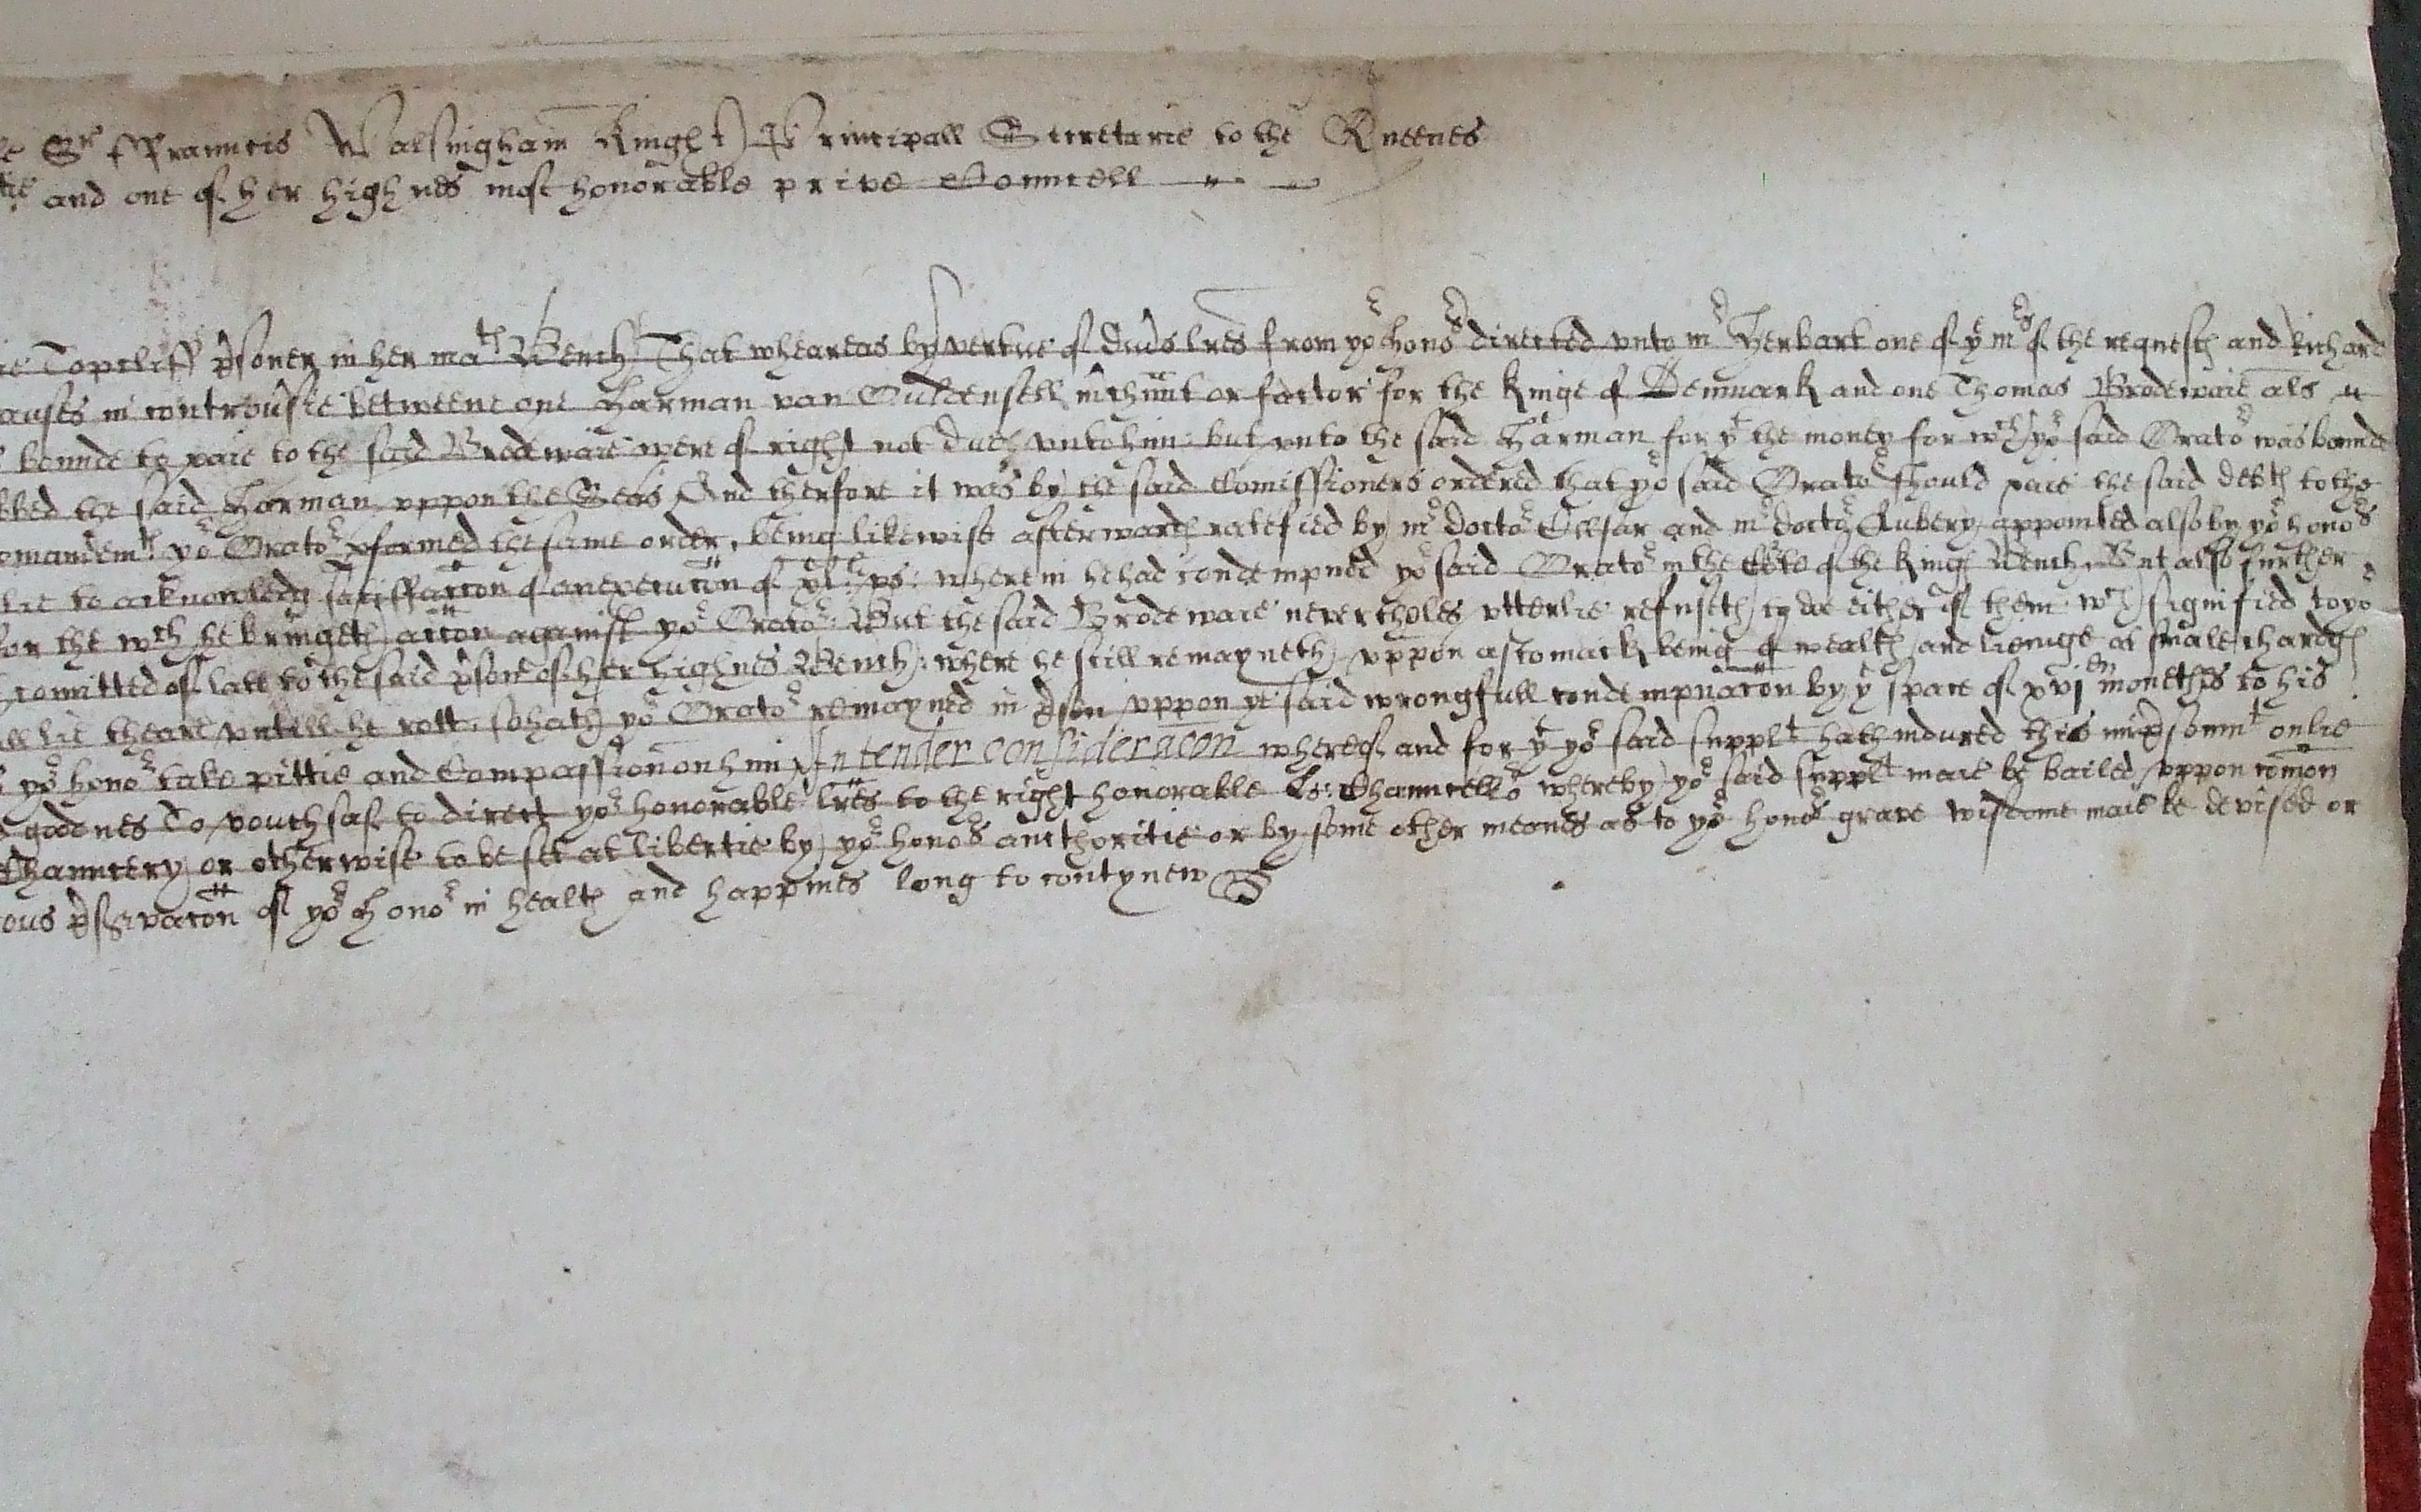 Sr ffrauncis Walsingham Knight Principall Secretarie to the Queenes
tie and one of her highnes most honorable privie Counsell
Topcliff p̱soner in her mats Bench That wheareas by vertue of diu̓s lr̃es from yor honor directed vnto mr Herbart one of ye mrs of the requests and Richard
auses in controu̓sie betweene one Harman van Ouldensell m̓chaunt or factor for the Kinge of Denmark and one Thomas Brodewaie als
bounde to paie to the said Brodewaie were of right not due vnto him but vnto the said Harman for yt the money for wch yor said Orator was bounde
bbed the said Harman vppon the Seas And therfore it was by the said Comissioners ordered that yor said Orator should paie the said debts to the
omandemt yor Orator ꝑformed the same order, being likewise afterwards ratefied by mr doctor Cesar and mr doctor Aubery appointed also by yor honor
lie to acknowledg satisffacc̃on of an execuc̃on of wherein he had condempned yor said Orator in the Co᷑te of the Kings Bench, But also further
for the wch he bringeth acc̃on against yor Orator: But the said Brodewaie nevertheles vtterlie refuseth to doe either of them wch signified to yor
comitted of late to the said p̱sone of her highnes Bench: where he still remayneth vppon a stomack being of wealth and lieinge at smale chardg
ll lie theare vntill he rott, so hath yor Orator remayned in p̱son vppon ye said wrongfull condempnac̃on by ye space of xvjen monethes to his
yor honor take pittie and Compassion on him In tender considerac̃on whereof and for yt yor said supplt hath indured this imp̱sonmt onlie
goodnes To vouchsaf to direct yor honorable lr̃es to the right honorable Lo: Chauncellor whereby yor said supplt maie be bailed vppon com̃on
Chauncery or otherwise to be set at libertie by yor honors aucthoritie or by some other meanes as to yor honors grave wisdome maie be devised or
ous p̱servac̃on of yor honor in health and happines long to contynew